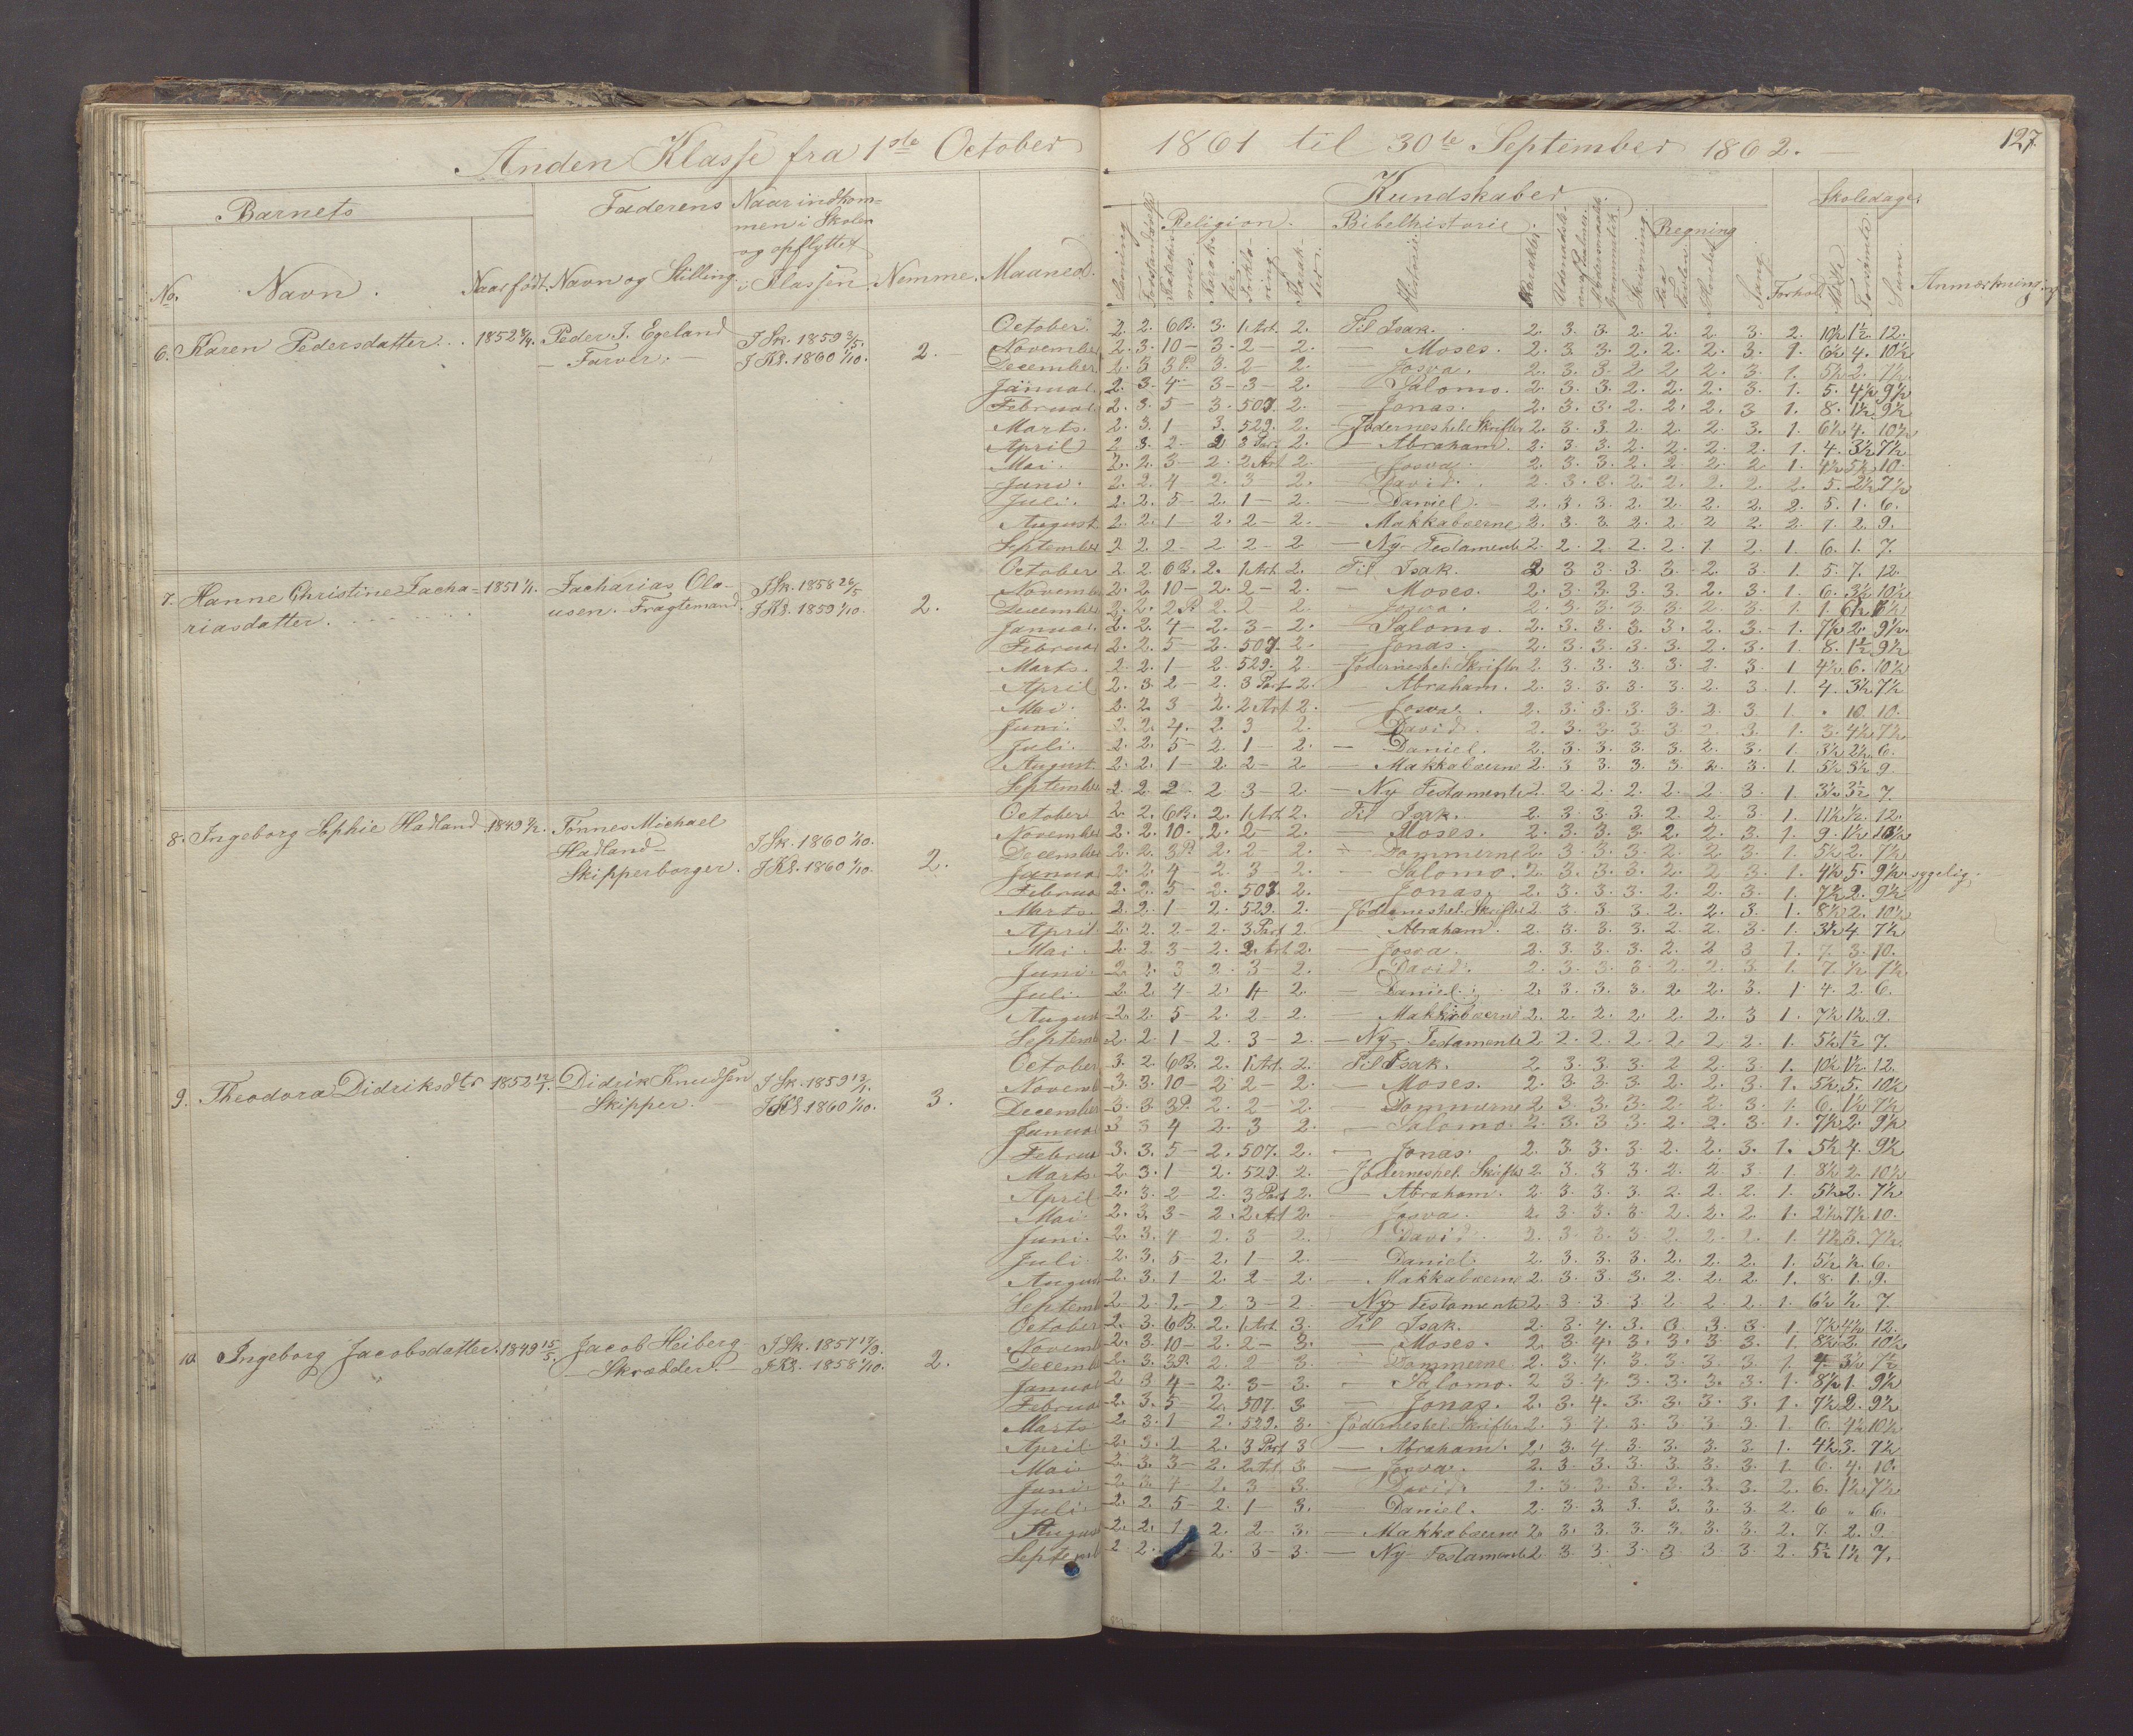 Anden Klasse fra 1ste October 1861 til 30te September 1862. 127
Barnets Faderens Naar indkom-
men i Skolen
og opflyttet
i Klassen
No. Navn. Naar født. Navn og Stilling Nemme. Maaned.
Kundskaber Skoledage
Læsning Religion. Bibelhistorie. Regning
Historie Karakter Skrivning Sang. Forhold Forsømte Sum Anmærkning.
6. Karen Pedersdatter. 1852 Peder J. Egeland
Farver.
I Sk. 1859 3/5.
I Kl. 1860 1/10. 2.
October. 2. 2. 6B. 3. 1 Art. 2. Til Isak. 2. 3. 3. 2. 2. 2. 3. 2. 10½ 1½ 12.
November 2. 3. 10 – 3. 2 – 2. — Moses. 2. 3. 3. 2. 2. 2. 3. 1. 6½ 4. 10½
December 2. 3 3P. 3. 2 – 2. — Josva. 2. 3. 3. 2 2 2. 3. 1. 5½ 2. 7½
Januar. 2. 3. 4 – 3 – 3 – 2. — Salomo. 2. 3. 3. 2. 2. 2. 3. 1. 5. 4½ 9½
Februar. 2. 3. 5 – 3. 507. 2. — Jonas. 2. 3. 3. 2. 2. 2. 3 1. 8. 1½ 9½
Marts. 2. 3. 1 – 3. 529. 2. Jødernes hel. Skrifter 2. 3. 3. 2. 2. 2. 3. 1. 6½ 4. 10½
April 2 3. 2 – 2 3 Part. 2. — Abraham. 2. 3. 3. 2. 2. 2. 2. 1. 4. 3½ 7½
Mai. 2. 2. 3 – 2. 2 Art 2. — Josva. 2. 3. 3. 2. 2. 2. 2. 1. 4½ 5½ 10.
Juni. 2. 2. 4 2. 3 – 2. — David. 2. 3. 3. 2. 2. 2. 2. 2. 5. 2½ 7½
Juli. 2. 2. 5 – 2. 1 – 2. — Daniel. 2. 3. 3. 2. 2. 2. 2. 2. 5. 1. 6.
August 2. 2. 1 – 2. 2 – 2. — Makkabæerne 2. 3. 3. 2. 2. 2 2. 2. 7. 2. 9.
September 2 2. 2 – 2. 2 – 2 — Ny Testamente 2. 2. 2. 2. 2. 1. 2. 1. 6. 1. 7.
7. Hanne Christine Zacha-
riasdatter. 1851 1/1. Zacharias Ola-
usen. Fragtemand.
I Sk. 1858 26/5
I Kl. 1859 1/10. 2.
October 2. 2 6B. 2. 1 Art. 2. Til Isak. 2 3 3. 3. 3. 2. 3. 1. 5. 7. 12.
Novemb 2. 2. 10 – 2. 2 – 2. — Moses. 2. 3. 3. 3. 3. 2. 3. 1. 6. 3½ 10½
December 2. 2. 2P. 2. 2 2. — Josva. 2. 3. 3. 3. 3. 2. 3. 1. 1. 6½ 7½
Januar. 2. 2. 4 – 2. 3 – 2. — Salomo. 2. 3. 3. 3. 3. 2. 3. 1. 7½ 2. 9½
Februar 2. 2. 5 – 2. 507. 2. — Jonas. 2. 3. 3. 3. 3. 2. 3. 1. 8. 1½ 9½
Marts. 2. 2. 1 – 2. 529. 2. Jødernes hel. Skrifter 2. 3. 3. 3. 3. 2. 3. 1 4½ 6. 10½
April 2. 3. 2 – 2. 3 Part 2. — Abraham. 2. 3. 3. 3. 3. 2. 3. 1. 4. 3½ 7½
Mai. 2. 2. 3 – 2. 2 Art. 2. — Josva. 2. 3. 3. 3. 3. 2. 3 1. " 10. 10.
Juni. 2. 2. 4. – 2. 3 2. David. 2. 3. 3. 3. 3. 2. 3. 1. 3. 4½ 7½
Juli. 2. 2. 5 – 2. 1 – 2. — Daniel. 2. 3. 3. 3. 3. 2. 3. 1. 3½ 2½ 6.
August. 2. 2. 1 – 2. 2 – 2. — Makkabæerne 2. 3 3. 3. 3. 2. 3. 1. 5½ 3½ 9.
September 2. 2. 2 – 2. 3 – 2. — Ny Testamente 2. 2. 2. 2. 2. 2. 3. 1 3½ 3½ 7.
8. Ingeborg Sophie Hadland. 1849 Tønnes Michael
Hadland
Skipperborger.
I Sk. 1860 1/10.
I Kl. 1860 1/10. 2.
October 2. 2. 6B. 2. 1 Art 2. Til Isak. 2. 3. 3. 3. 2. 2. 3. 1. 11½ ½. 12.
November 2. 2. 10. 2. 2 – 2. — Moses. 2. 3. 3. 3. 2. 2. 3. 1. 9. 1½ 10½
December 2. 2. 3P. 2. 2 – 2. — Dommerne 2. 3. 3. 3. 2. 2. 3. 1. 5½ 2. 7½
Januar 2. 2. 4 – 2. 3 – 2. — Salomo. 2. 3. 3. 3. 2. 2. 3. 1. 4½ 5. 9½ sygelig.
Februar 2. 2. 5 – 2. 507 2. — Jonas. 2. 3. 3. 3. 2. 2. 3. 1. 7½ 2. 9½
Marts. 2. 2. 1 – 2. 529. 2. Jødernes hel. Skrifter 2 3. 3. 3. 2. 2. 3. 1. 8½ 2. 10½
April 2. 2. 2 – 2. 3 Part 2. — Abraham. 2. 3. 3. 3. 2. 2. 3. 1. 3½ 4. 7½
Mai. 2. 2. 3 – 2. 2. Art. 2. — Josva. 2. 3. 3. 3. 2. 2. 3 1. 7. 3. 10.
Juni. 2. 2. 3 2. 3 – 2. — David. 2. 3. 3. 3 2. 2. 3. 1. 7. ½ 7½
Juli. 2. 2. 4 – 2. 1 – 2. — Daniel. 2. 3. 3. 3. 2. 2. 3. 1 4. 2. 6.
August 2. 2. 5 – 2. 2 – 2. — Makkabæerne 2. 2. 2. 2. 2. 2. 3 1. 7½ 1½ 9.
Septemb 2. 2. 1 – 2. 3 – 2. — Ny Testamente 2 2. 2. 2. 2. 2. 2. 1. 5½ 1½ 7.
9. Theodora Didriksdtr 1852 12/1. Didrik Knudsen
Skipper.
I Sk. 1859
I Kl. 1860 1/10. 3.
October 3. 2. 6B. 2. 1 Art. 2. Til Isak. 2 3. 3. 3. 2 2. 3. 1. 10½ 1½ 12.
Novemb 3. 3. 10 – 2 2 – 2. — Moses. 2. 3. 3. 3. 2. 2. 3. 1. 5½ 5. 10½
December 3. 3. 3P. 2. 2 – 2. — Dommerne 2. 3. 3. 3. 2. 2. 3. 1. 6. 1½ 7½
Januar 3 3 4 2. 3 2. — Salomo. 2. 3. 3. 3. 2. 2. 3. 1. 7½ 2. 9½
Februar 3. 3. 5 – 2. 507. 2. — Jonas. 2. 3. 3. 3. 2. 2. 3. 1. 5½ 4. 9½
Marts. 2. 3. 1 – 2. 529. 2. Jødernes hel. Skrifter 2. 3. 3. 3. 2. 2. 3 1. 8½ 2. 10½
April 2. 3. 2 2. 3 Part 2. — Abraham. 2. 3. 3. 3. 2. 2. 2. 1. 5½ 2. 7½
Mai. 2. 3. 3 – 2. 2 Art 2. — Josva. 2. 3. 3. 3. 2. 2. 2. 1. 2½ 7½ 10.
Juni. 2. 3. 4 2. 3 – 2. David. 2. 3. 3. 3. 2. 2. 2. 1. 4½ 3. 7½
Juli 2. 3. 5 – 2. 1 – 2. — Daniel. 2. 3. 3. 3. 2. 2. 2. 1. 5½ ½. 6.
August 2. 3. 1 – 2. 2 – 2. — Makkabæerne 2. 3. 3. 3. 2. 2. 2. 1. 8. 1. 9.
Septemb 2 2. 2 – 2 3 – 2. — Ny Testamente 2. 3. 3. 3 2. 2. 2. 1. 6½ ½ 7.
10. Ingeborg Jacobsdatter. 1849 15/5. Jacob Heiberg
Skrædder.
I Sk. 1857
I Kl. 1858 1/10. 2.
October 2. 3. 6B. 2. 1 Art. 3. Til Isak. 2. 3. 4. 3. 3 3. 3. 1. 7½ 4½ 12.
Novemb 2. 3. 10 – 2. 2 – 3. — Moses. 2. 3. 4. 3. 3. 3. 3. 1. 8½ 2. 10½
Decemb 2. 3. 3P. 2. 2 3. — Dommerne 2. 3. 4. 3. 3. 3. 3. 1. 4 3½ 7½
Januar 2 3 4 – 2. 3 – 3. — Salomo. 2 3. 4. 3. 3. 3. 3. 1. 8½ 1. 9½
Februar 2. 3. 5 – 2. 507. 3 — Jonas. 2. 3. 4. 3. 3. 3. 3. 1. 7½ 2. 9½
Marts 2. 3. 1 2. 529. 3. Jødernes hel. Skrifter 2. 3. 4. 3. 3. 3. 3. 1. 6. 4½ 10½
April. 2. 3. 2 – 2. 3 Part 3 — Abraham. 2. 3. 4. 3. 3. 3. 3. 1. 4½ 3. 7½
Mai 2. 3. 3 – 2. 2 Art 3. — Josva. 2. 3. 3. 3. 3. 3. 3. 1. 6. 4. 10.
Juni 2. 3. 4 – 2. 3 3. David. 2. 3. 3. 3. 3. 3. 3. 2. 6. 1½ 7½
Juli 2. 2. 5 – 2. 1 – 3. — Daniel. 2. 3. 3. 3. 3. 3. 3. 2. 6 " 6.
August 2. 2. 1 – 2. 2 – 3. — Makkabæerne 2. 3. 3. 3. 3. 3. 3. 2. 7. 2. 9.
Septemb 2 2. 2. 3 – 3. — Ny Testamente 2 3. 3. 3. 3 3. 3 2. 5½ 1½ 7.